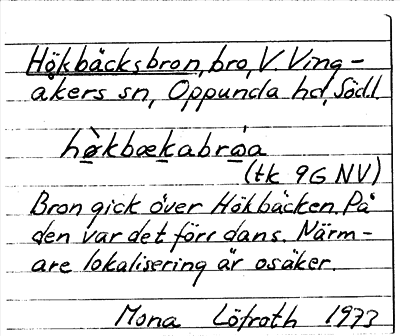 Hökbäcksbron, bro, V. Ving-
åkers sn, Oppunda hd, Södl.
hø̀kbækabróa
(tk 9G NV)
Bron gick över Hökbäcken. På
den var det förr dans. Närm-
are lokalisering är osäker.
Mona Löfroth 1973